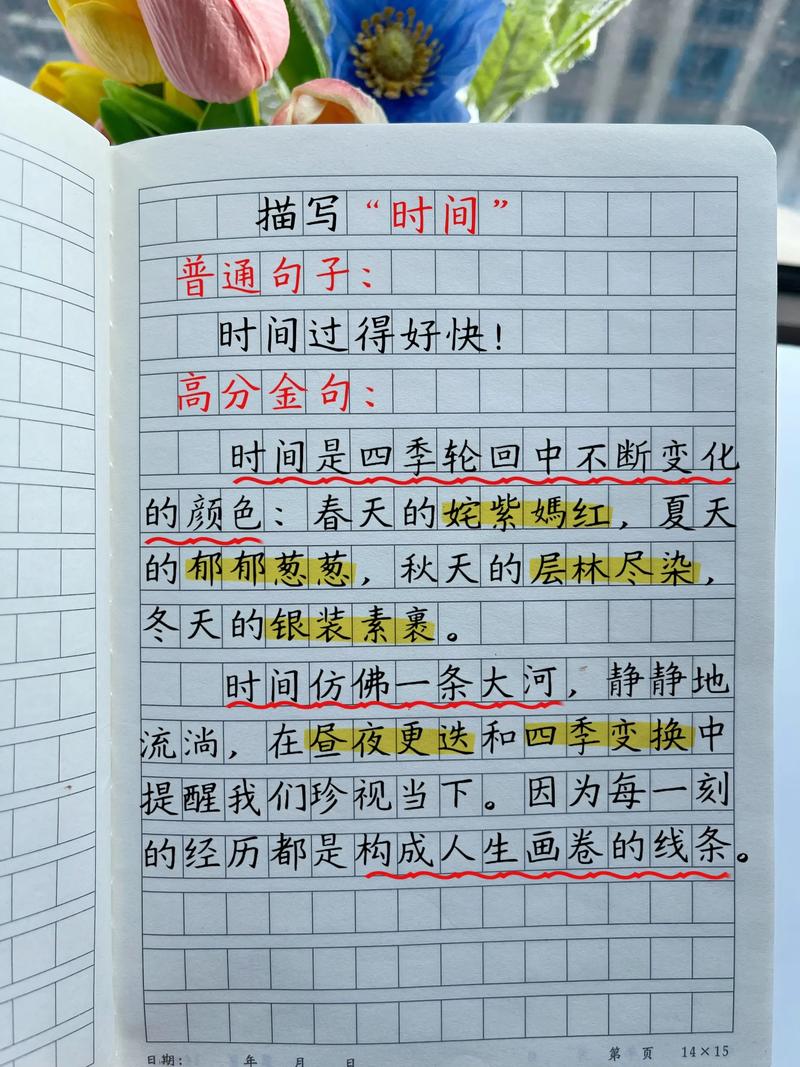 描写“时间”
普通句子：
时间过得好快！
高分金句：
时间是四季轮回中不断变化
的颜色：春天的姹紫嫣红，夏天
的郁郁葱葱，秋天的层林尽染，
冬天的银装素裹。
时间仿佛一条大河，静静地
流淌，在昼夜更迭和四季变换中
提醒我们珍视当下。因为每一刻
的经历都是构成人生画卷的线条。
日期： 年 月 日 第 页 14×15